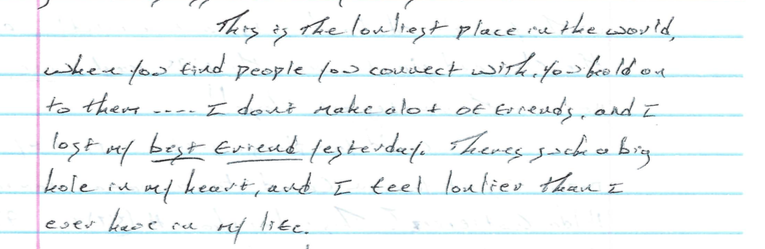 This is the lonliest place in the world,
when you find people you connect with, you hold on
to them .... I don't make alot of friends, and I
lost my best friend yesterday. Theres such a big
hole in my heart, and I feel lonlier than I
ever have in my life.